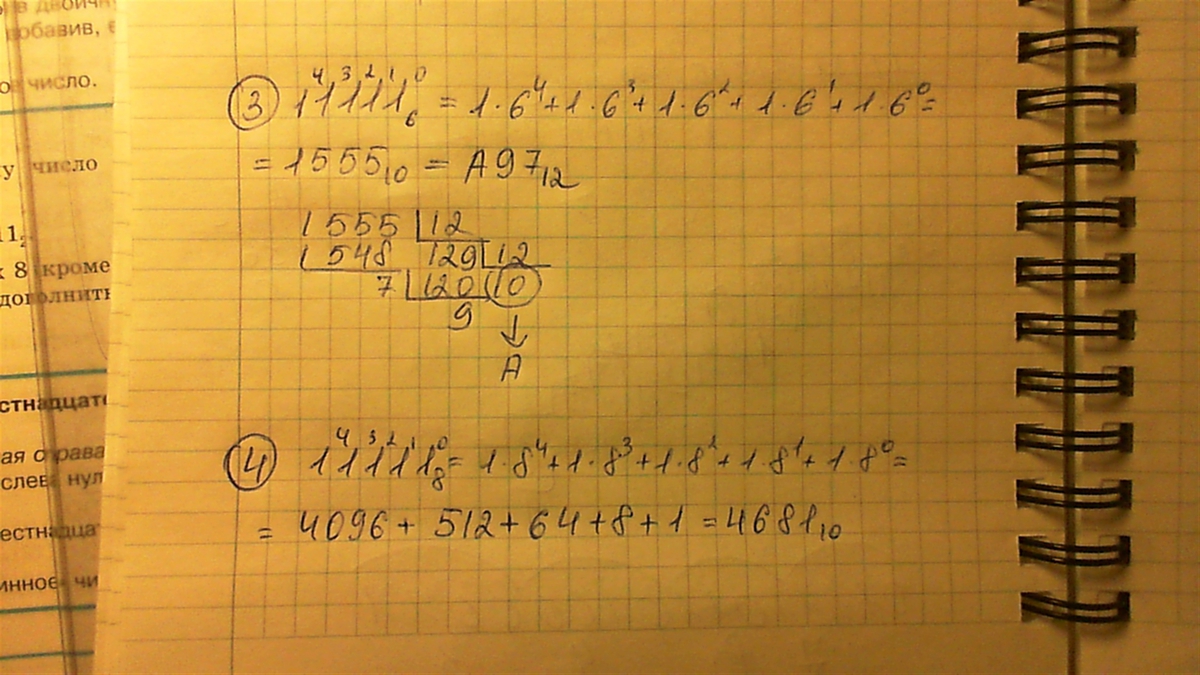 о в двоичн
добавив, е
ое число.
у число
11,
х 8 кроме
дополнить
стнадцате
ая справа
слева нул
естнадцат
инное чи
3 4 3 2 1 0
11111₆ = 1·6⁴+1·6³+1·6²+1·6¹+1·6⁰=
= 1555₁₀ = A97₁₂
1555 12
1548 129 12
7 120 10
9
A
4 4 3 2 1 0
11111₈= 1·8⁴+1·8³+1·8²+1·8¹+1·8⁰=
= 4096+ 512+64+8+1=4681₁₀